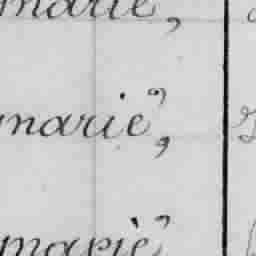 marié,
marié,
marié